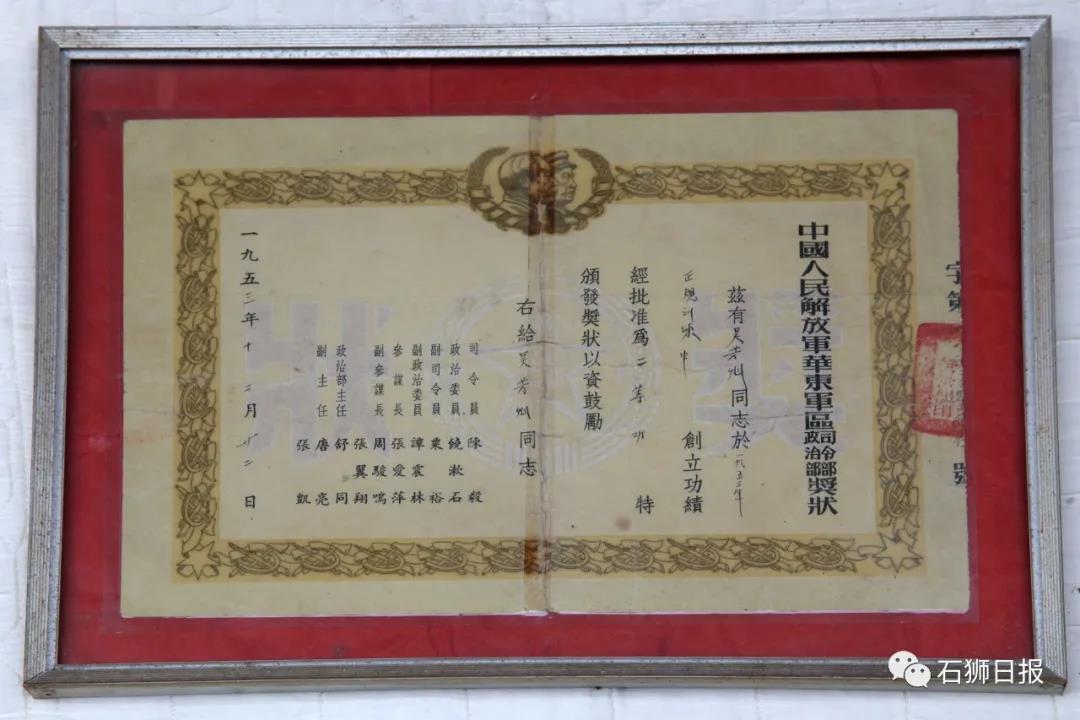 字第 號
中國人民解放軍華東軍區司令部政治部獎狀
茲有吴芳 同志於一九五三年
正規训练中 創立功績
經批准爲二等功 特
頒發獎狀以資鼓勵
右給吴芳 同志
司令員 陳毅
政治委員 饒漱石
副司令員 粟裕
副政治委員 譚震林
參謀長 張愛萍
副參謀長 周駿鳴
張翼翔
政治部主任 舒同
副主任 唐亮
張凱
一九五三年十二月廿二日
獎狀
石狮日报